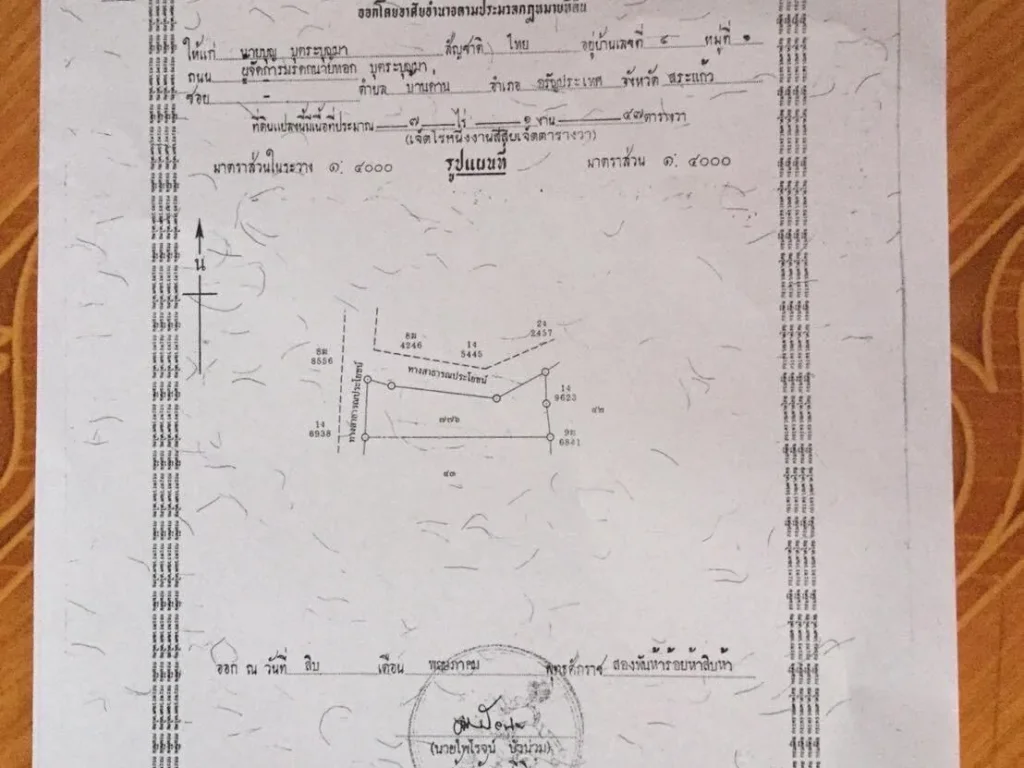 ออกโดยอาศัยอำนาจตามประมวลกฎหมายที่ดิน
ให้แก่ นายบุญ บุตระบุญมา สัญชาติ ไทย อยู่บ้านเลขที่ ๔ หมู่ที่ ๑
ถนน ผู้จัดการมรดกนายทอก บุตระบุญมา
ซอย - ตำบล บ้านด่าน อำเภอ อรัญประเทศ จังหวัด สระแก้ว
ที่ดินแปลงนี้มีเนื้อที่ประมาณ ๗ ไร่ ๑ งาน ๔๗ ตารางวา
(เจ็ดไร่หนึ่งงานสี่สิบเจ็ดตารางวา)
มาตราส่วนในระวาง ๑: ๔๐๐๐ รูปแผนที่ มาตราส่วน ๑: ๔๐๐๐
น
8ม
8556
8ม
4246
14
5445
2ง
2457
ทางสาธารณประโยชน์
ทางสาธารณประโยชน์
14
9623
๔๒
๗๗๖
14
6938
6841
๔๓
ออก ณ วันที่ สิบ เดือน พฤษภาคม พุทธศักราช สองพันห้าร้อยห้าสิบห้า
(นายไพโรจน์ บัวน่วม)